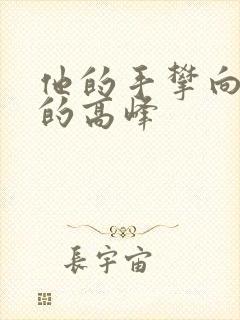 他的手攀向
的高峰
長宇宙